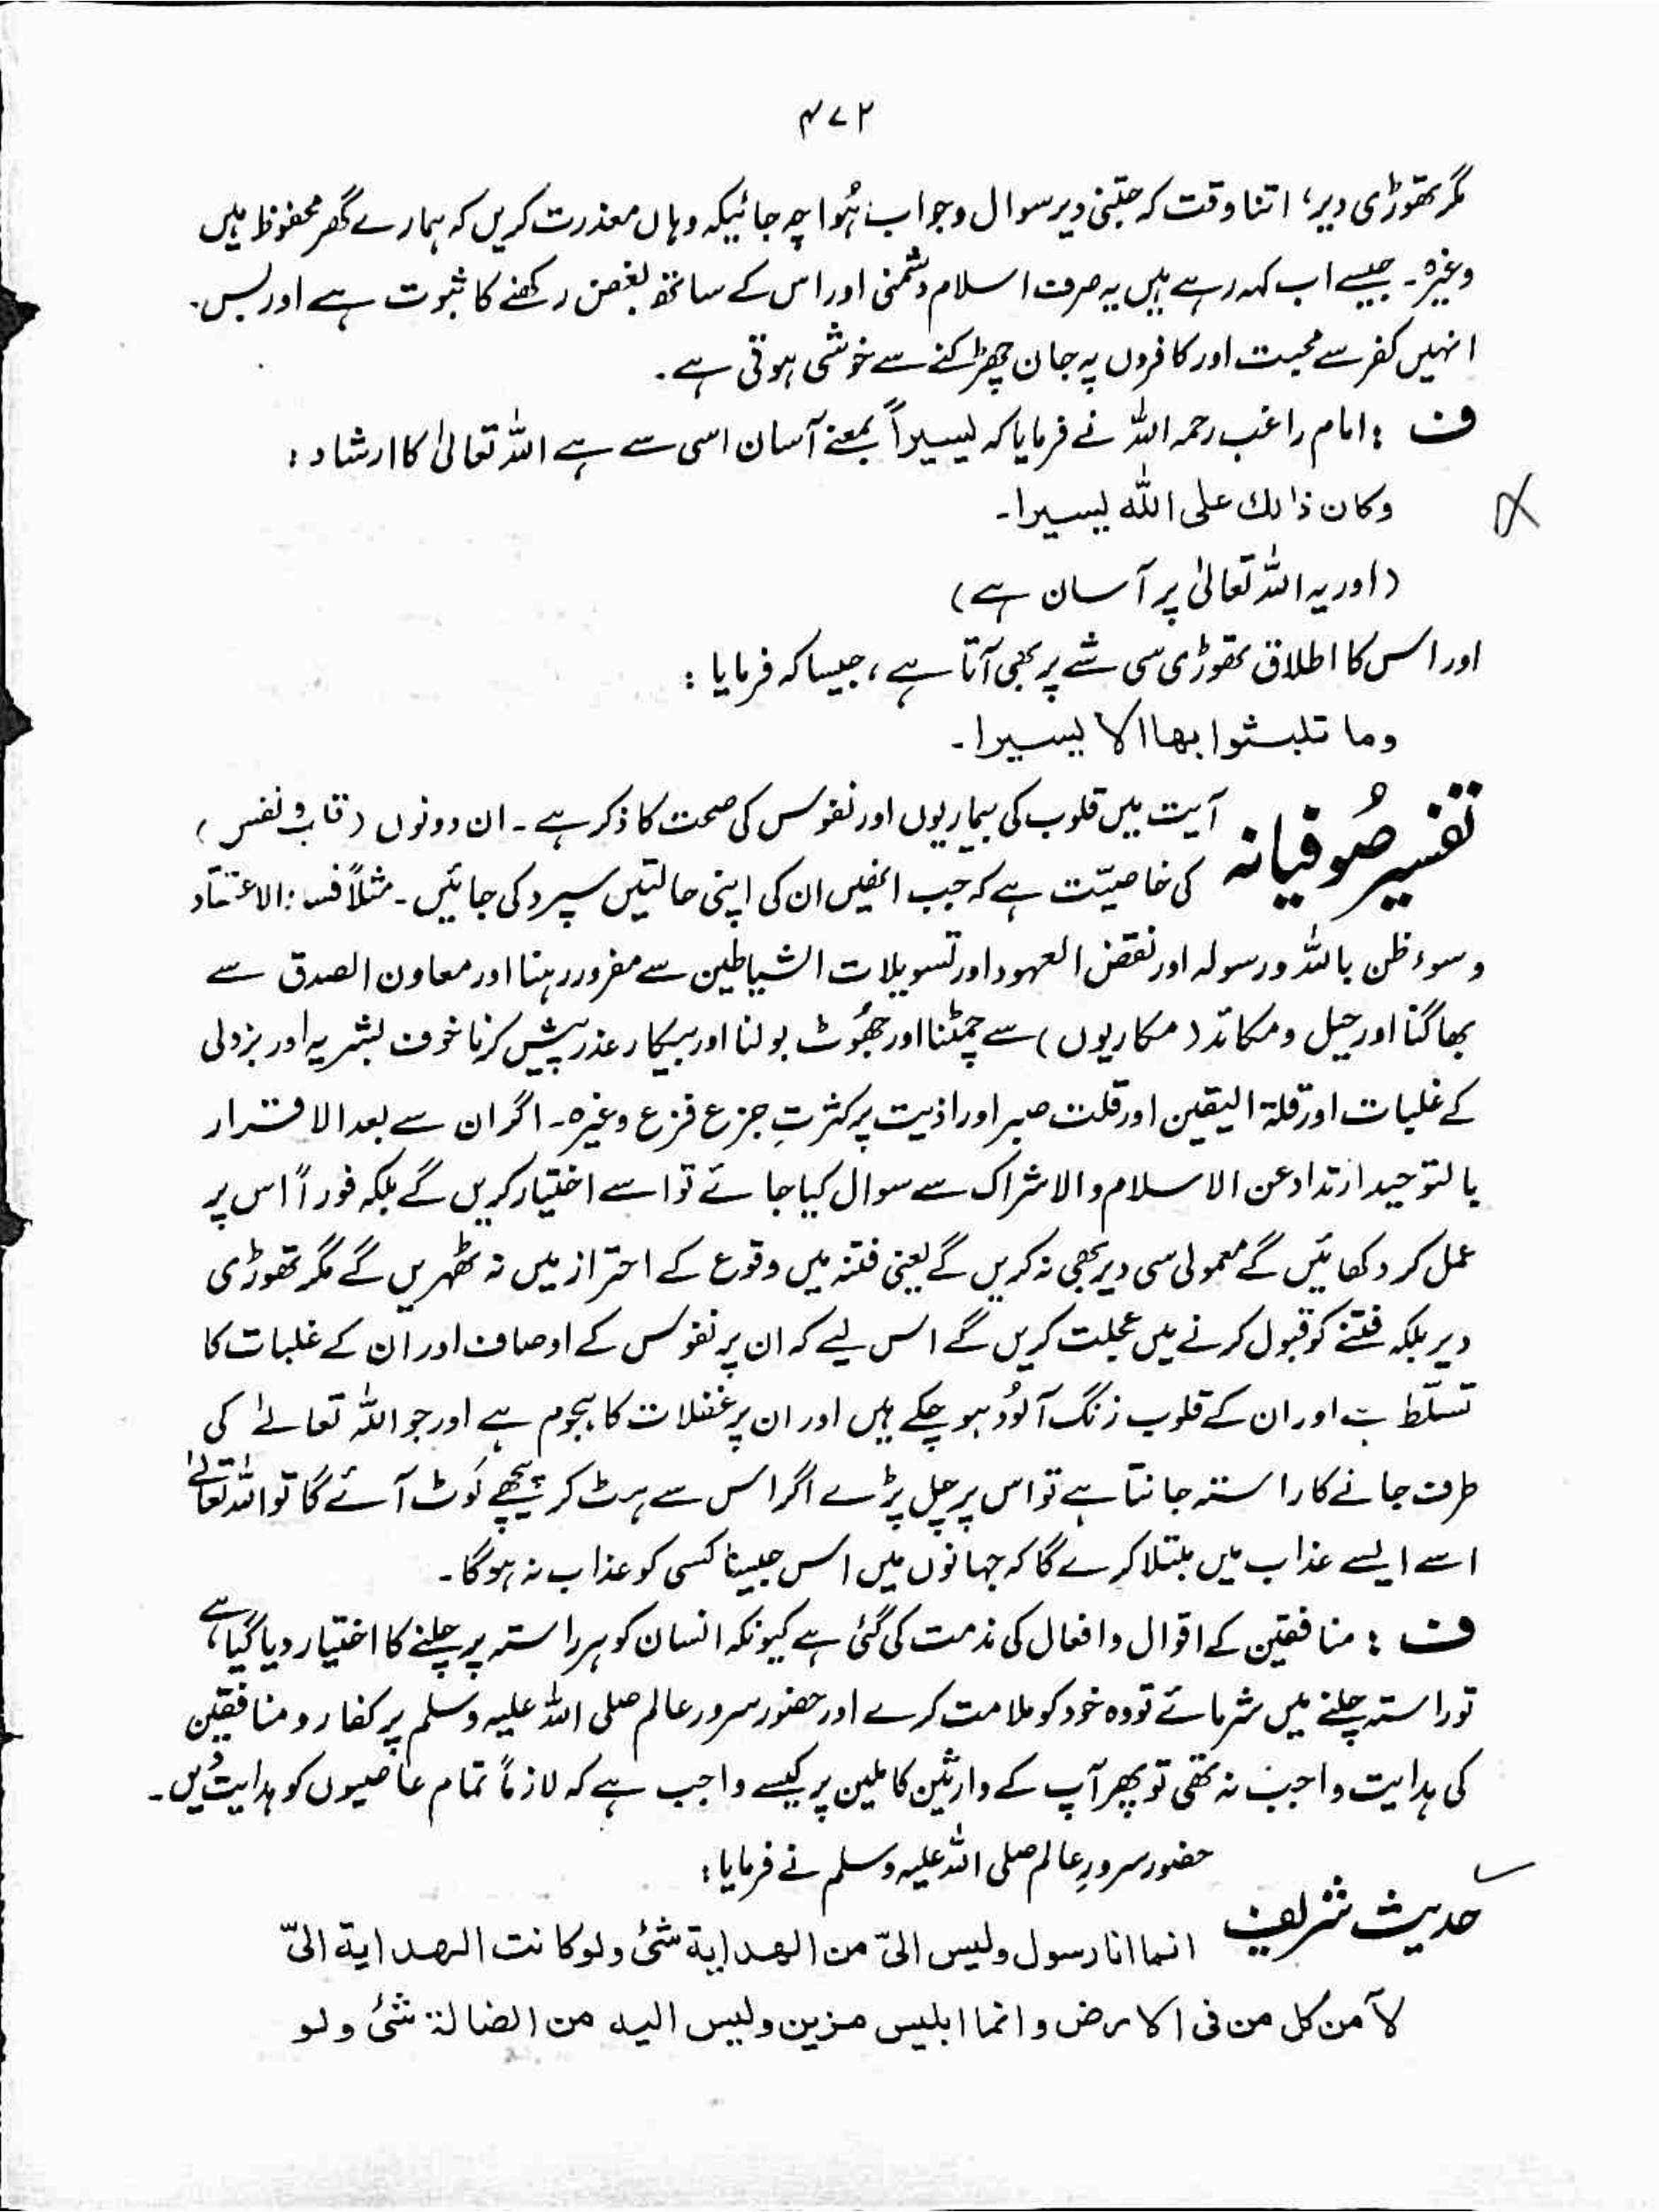 ۴۷۲
مگر تھوڑی دیر، اتنا وقت کہ جتنی دیر سوال وجواب ہُوا چہ جائیکہ وہاں معذرت کریں کہ ہمارے گھر محفوظ ہیں
وغیرہ۔ جیسے اب کہہ رہے ہیں یہ صرف اسلام دشمنی اور اس کے ساتھ بغض رکھنے کا ثبوت ہے اور بس۔
انہیں کفر سے محبت اور کافروں پہ جان چھڑکنے سے خوشی ہوتی ہے۔
ف : امام راغب رحمہ اللہ نے فرمایا کہ یسیراً بمعنے آسان اسی سے ہے اللہ تعالیٰ کا ارشاد :
وکان ذالك علی اللہ یسیرا۔
(اور یہ اللہ تعالیٰ پر آسان ہے)
اور اس کا اطلاق تھوڑی سی شے پر بھی آتا ہے، جیسا کہ فرمایا :
وما تلبثوا بھا الا یسیرا۔
تفسیر صُوفیانہ آیت میں قلوب کی بیماریوں اور نفوس کی صحت کا ذکر ہے۔ ان دونوں (قلب و نفس)
کی خاصیّت ہے کہ جب انھیں ان کی اپنی حالتیں سپرد کی جائیں۔ مثلاً فساد الاعتقاد
وسوء ظن باللہ ورسولہ اور نقض العہود اور تسویلات الشیاطین سے مغرور رہنا اور معاون الصدق سے
بھاگنا اور حیل ومکائد (مکاریوں) سے چمٹنا اور جھُوٹ بولنا اور بیکار عذر پیش کرنا خوف بشریہ اور بزدلی
کے غلبات اور قلۃ الیقین اور قلت صبر اور اذیت پر کثرتِ جزع فزع وغیرہ۔ اگر ان سے بعد الاقرار
بالتوحید ارتداد عن الاسلام والاشراک سے سوال کیا جائے تو اسے اختیار کریں گے بلکہ فوراً اس پر
عمل کر دکھائیں گے معمولی سی دیر بھی نہ کریں گے یعنی فتنہ میں وقوع کے احتراز میں نہ ٹھہریں گے مگر تھوڑی
دیر بلکہ فتنے کو قبول کرنے میں عجلت کریں گے اس لیے کہ ان پر نفوس کے اوصاف اور ان کے غلبات کا
تسلّط ہے اور ان کے قلوب زنگ آلُود ہو چکے ہیں اور ان پر غفلات کا ہجوم ہے اور جو اللہ تعالےٰ کی
طرف جانے کا راستہ جانتا ہے تو اس پر چل پڑے اگر اس سے ہٹ کر پیچھے لَوٹ آئے گا تو اللہ تعالےٰ
اسے ایسے عذاب میں مبتلا کرے گا کہ جہانوں میں اس جیسا کسی کو عذاب نہ ہوگا۔
ف : منافقین کے اقوال وافعال کی مذمت کی گئی ہے کیونکہ انسان کو ہر راستہ پر چلنے کا اختیار دیا گیا ہے
تو راستہ چلنے میں شرمائے تو وہ خود کو ملامت کرے اور حضور سرور عالم صلی اللہ علیہ وسلم پر کفار و منافقین
کی ہدایت واجب نہ تھی تو پھر آپ کے وارثین کاملین پر کیسے واجب ہے کہ لازماً تمام عاصیوں کو ہدایت دیں۔
حضور سرورِ عالم صلی اللہ علیہ وسلم نے فرمایا :
حدیث شریف انما انا رسول ولیس الیّ من الھدایة شئ ولو کانت الھدایة الیّ
لآمن کل من فی الارض وانما ابلیس مزین ولیس الیہ من الضالة شئ ولو